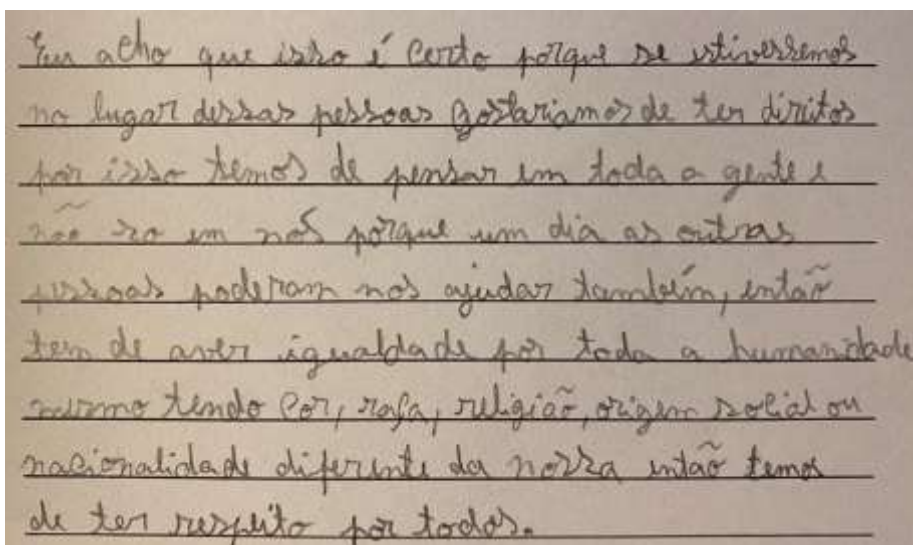 Eu acho que isso é certo porque se estivessemos
no lugar dessas pessoas gostariamos de ter direitos
por isso temos de pensar em toda a gente e
não so em nós porque um dia as outras
pessoas poderam nos ajudar também, então
tem de aver igualdade por toda a humanidade
mesmo tendo cor, rafa, religião, origem social ou
nacionalidade diferente da nossa então temos
de ter respeito por todos.